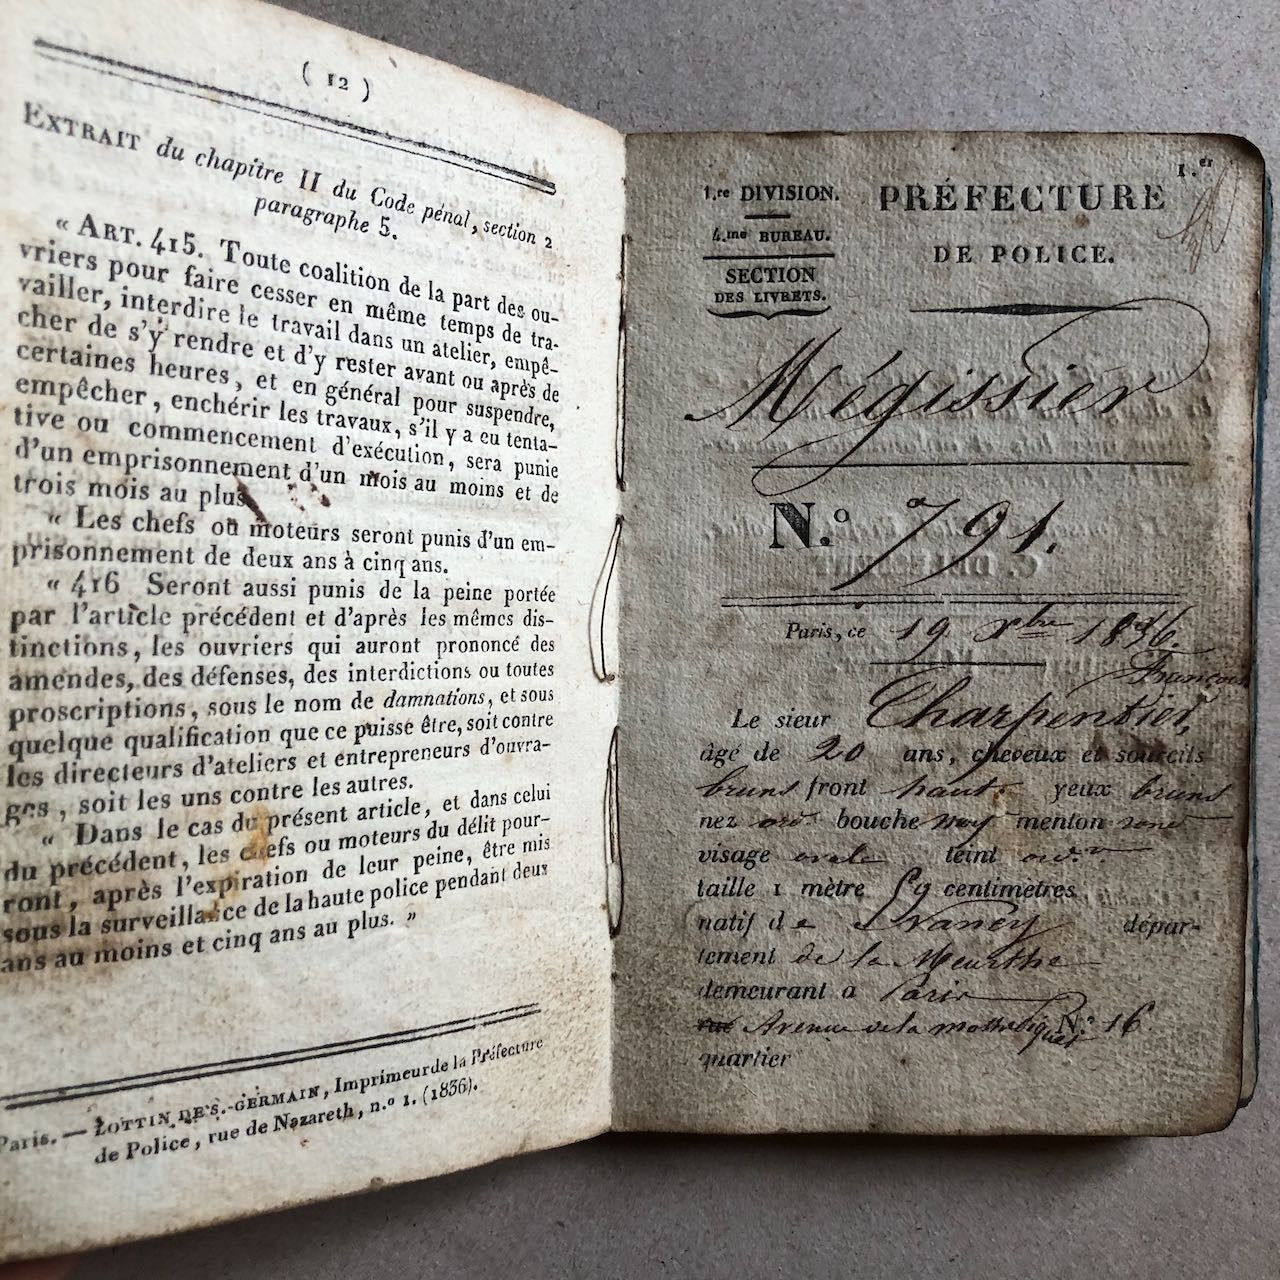 ( 12 )
EXTRAIT du chapitre II du Code pénal, section 2
paragraphe 5.
« ART. 415. Toute coalition de la part des ou-
vriers pour faire cesser en même temps de tra-
vailler, interdire le travail dans un atelier, empê-
cher de s'y rendre et d'y rester avant ou après de
certaines heures, et en général pour suspendre,
empêcher, enchérir les travaux, s'il y a eu tenta-
tive ou commencement d'exécution, sera punie
d'un emprisonnement d'un mois au moins et de
trois mois au plus.
« Les chefs ou moteurs seront punis d'un em-
prisonnement de deux ans à cinq ans.
« 416 Seront aussi punis de la peine portée
par l'article précédent et d'après les mêmes dis-
tinctions, les ouvriers qui auront prononcé des
amendes, des défenses, des interdictions ou toutes
proscriptions, sous le nom de damnations, et sous
quelque qualification que ce puisse être, soit contre
les directeurs d'ateliers et entrepreneurs d'ouvra-
ges, soit les uns contre les autres.
« Dans le cas du présent article, et dans celui
du précédent, les chefs ou moteurs du délit pour-
ront, après l'expiration de leur peine, être mis
sous la surveillance de la haute police pendant deux
ans au moins et cinq ans au plus. »
Paris. — LOTTIN DE S.-GERMAIN, Imprimeur de la Préfecture
de Police, rue de Nazareth, n.º 1. (1836).
1.er
1.re DIVISION.
4.me BUREAU.
SECTION
DES LIVRETS.
PRÉFECTURE
DE POLICE.
Mégissier
N.º 791.
Paris, ce 19 Xbre 1836
François
Le sieur Charpentier,
âgé de 20 ans, cheveux et sourcils
bruns front haut yeux bruns
nez ord bouche moy menton rond
visage ovale teint ord.re
taille 1 mètre 59 centimètres
natif de Nancy dépar-
tement de la Meurthe
demeurant à Paris
rue Avenue de la mothe piquet N.º 16
quartier